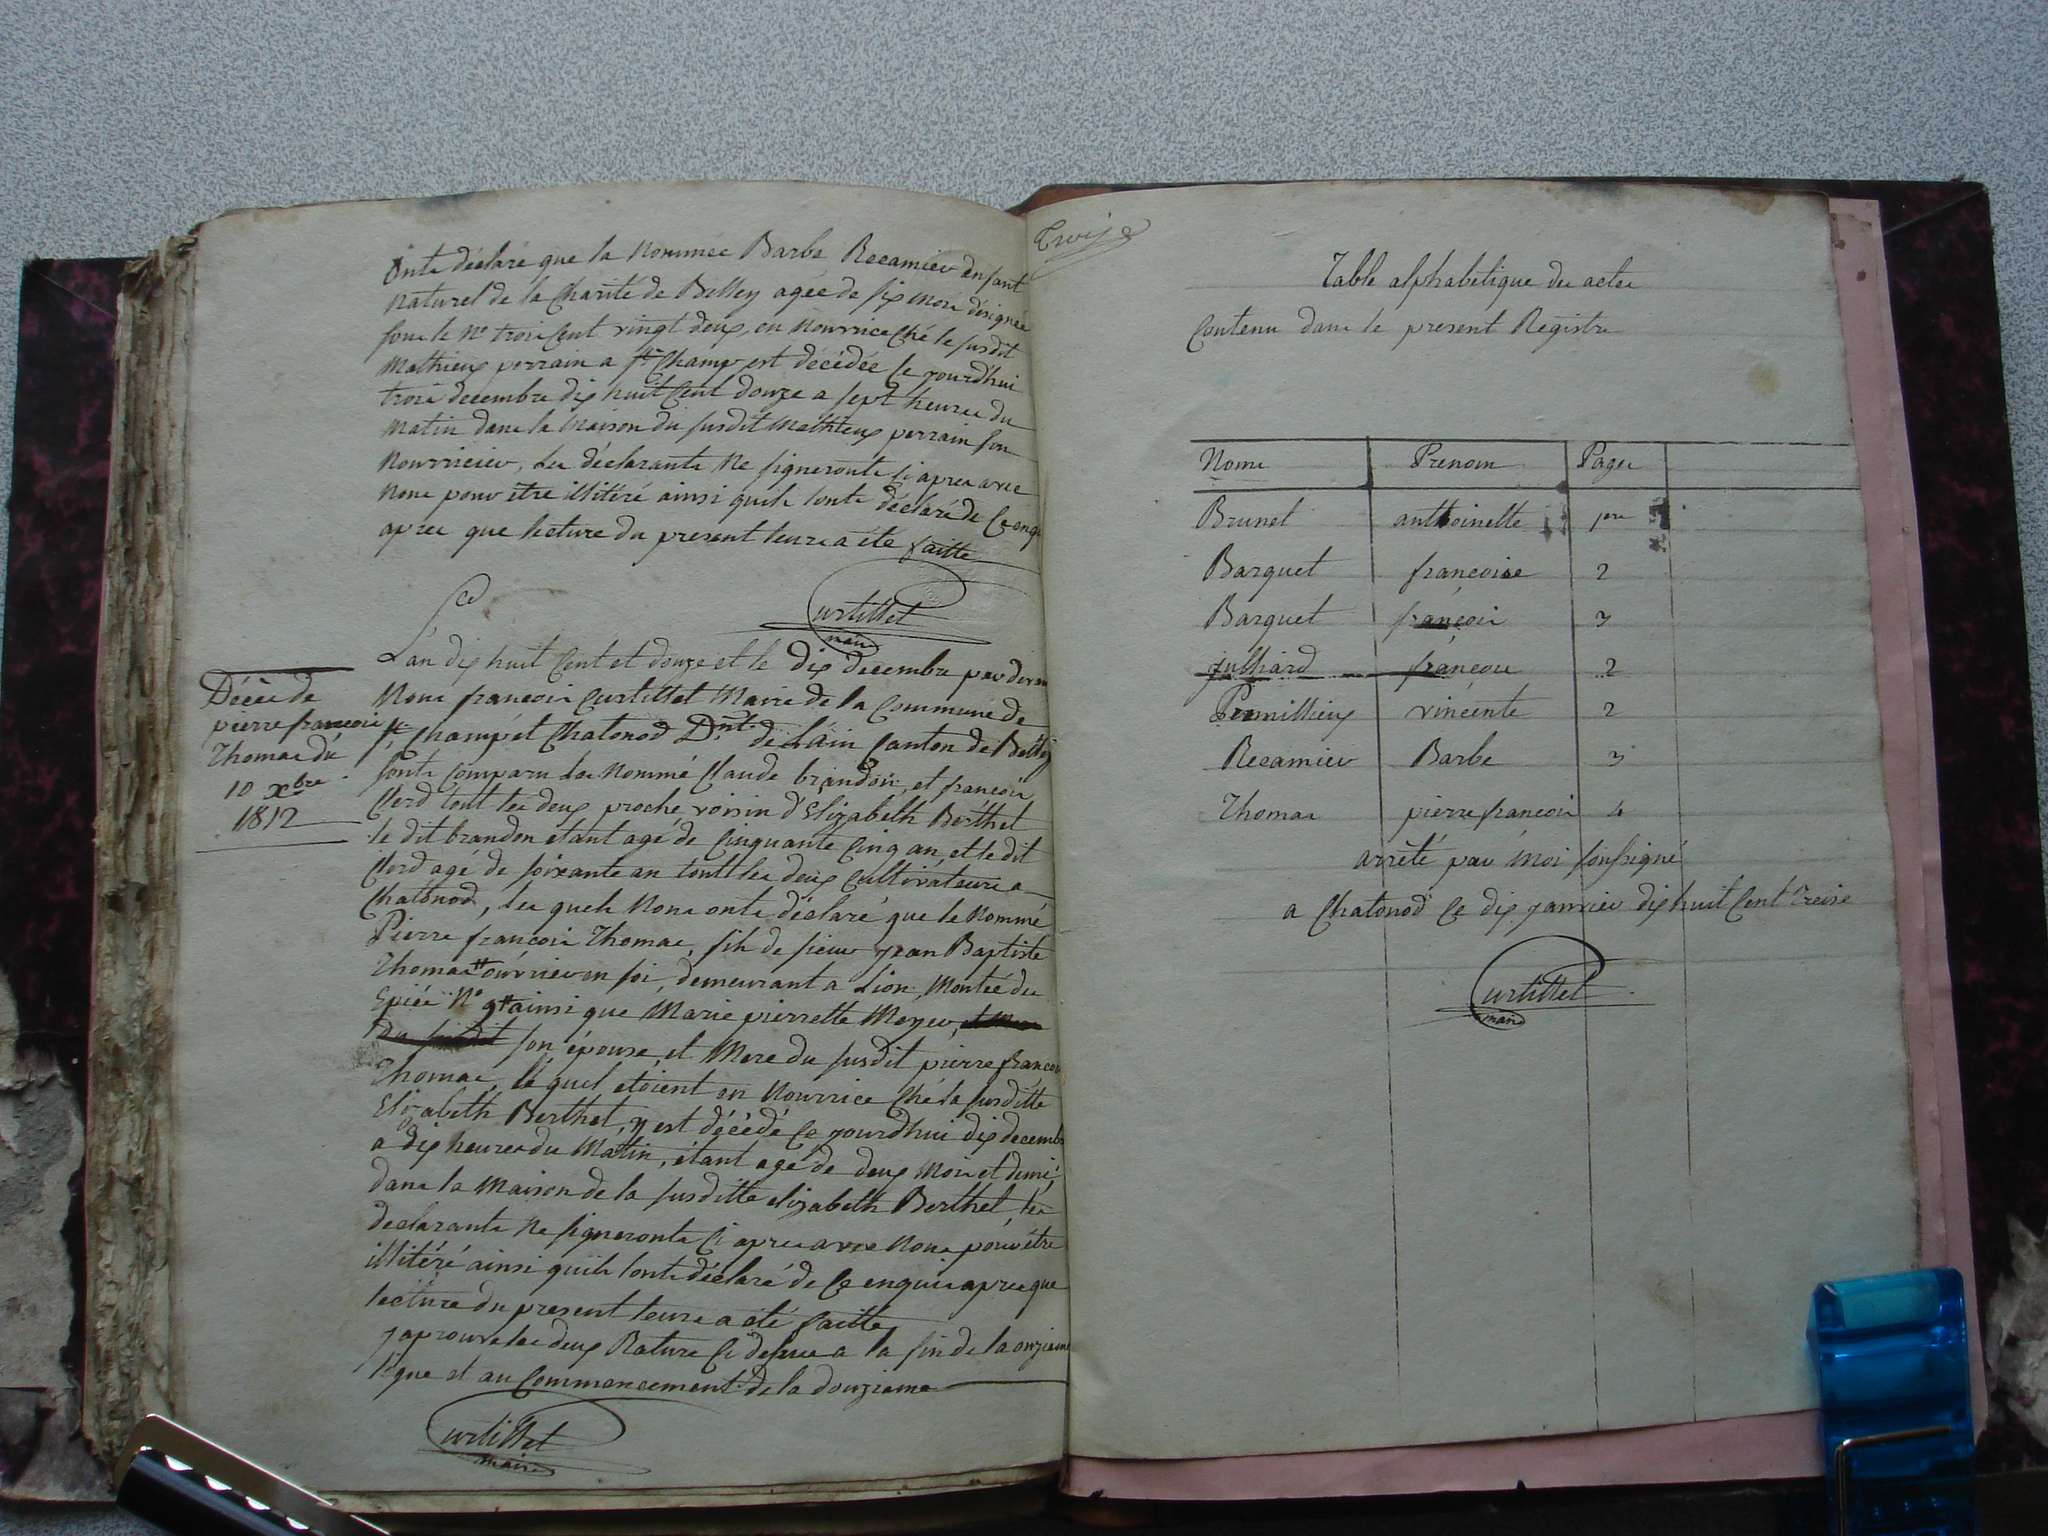 onts déclaré que la nommée Barbe Recamier enfant
naturel de la Charité de Belley agée de six mois désignée
sous le N° trois Cent vingt deux, en nourrice ché le susdit
Mathieux perrain a st Champ est décédée ce jourd'hui
trois decembre dix huit Cent douze a sept heures du
matin dans la maison du susdit Mathieux perrain son
nourricier, les déclarants ne signeronts ci apres avec
nous pour être illitéré ainsi quils lonts déclaré de ce enqui
apres que lecture du present leurs a été faitte
Curtillet
maire
L'an dix huit Cent et douze et le dix decembre par devant
Nous francois Curtillet Maire de la Commune de
st Champ et Chatonod Dmt de Láin Canton de Belley
sonts comparu les nommé Claude brandon, et francois
Clerd tout les deux proche voisin d'Elizabeth Berthet
le dit brandon etant agé de Cinquante Cinq an, et le dit
Clerd agé de soixante an tout les deux Cultivateurs a
Chatonod, les quels nous onts déclaré que le nommé
Pierre francois Thomas, fils de sieur jean Baptiste
Thomas ouvrier en soi, demeurant a Lion, Montée du
Epiés N° 9 ainsi que Marie pierrette Meyer, et Mere
du susdit son épouse, et Mere du susdit pierre francois
Thomas, lé quel etoient en nourrice ché la susditte
Elizabeth Berthet, y est décédé ce jourdhui dix decembre
a dix heures du Matin, étant agé de deux mois et demi,
dans la maison de la susditte elizabeth Berthet, les
declarants ne signeronts ci apres avec nous pour être
illitéré ainsi quils lonts déclaré de ce enquis apres que
lecture du present leurs a été faitte
japrouve les deux Rature ci dessus a la fin de la onzieme
ligne et au Commencement de la douzieme
Curtillet
maire
Décès de
pierre francois
Thomas du
10 xbre
1812
Table alphabetique des actes
Contenu dans le present Registre
Noms Prenom Pages
Brunet anthoinette 1ere
Barquet francoise 2
Barquet francois 3
julliard francois 2
Premillieux vincente 2
Recamier Barbe 3
Thomas pierre francois 4
arrèté par moi soussigné
a Chatonod ce dix janvier dix huit Cent treise
Curtillet
maire